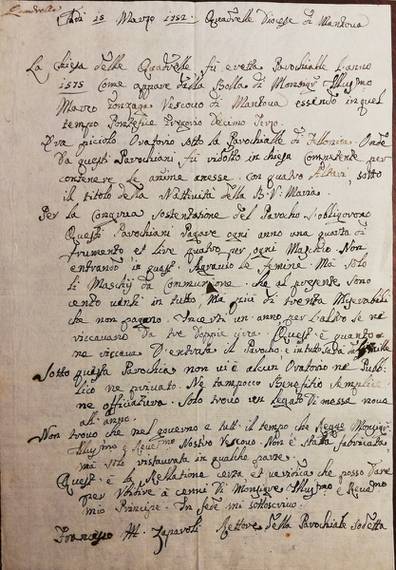 Quadrelle
Adi 15 Marzo 1752. Quadrelle Diocese di Mantova
La Chiesa delle Quadrelle fù eretta Parochialle l'anno
1575 Come appare dalla Bolla di Monsigr Illusmo
Marco Gonzaga Vescovo di Mantova essendo in quel
tempo Pontefice Gregorio Decimo Terzo.
Era piciolo Oratorio sotto la Parochialle di Onde
Da questi Parochiani fù ridotto in chiesa Competente per
contenere le anime anesse. con quatro Altari, sotto
il titolo della Nattività della B. V. Maria.
Per la Congrua Sostentatione del Parocho s'obligorono
Questi Parochiani Pagare ogni anno una quarta di
frumento et live quatro per ogni Maschio. Non
entrando in quest' Agravio le Femine. Mà solo
li Maschij da Communione. che al presente sono
cento venti in tutto, Ma più di trenta Miserabili
che non pagano. Incerti un anno per l'altro se ne
riccavano da tre doppie circa. Quest' è quanto
ne riccava D'entrata il Parocho. e in tutto sarà di
Sotto questa Parochia non vi è alcun Oratorio ne Pubb-
lico ne privato. Ne tampoco Beneficio Semplice
ne officiatura. Solo trovo un legato di messe nove
all' anno.
Non trovo che nel governo e tutt' il tempo che Regge Monsigr
Illusmo e Revermo Nostro Vescovo. Non è stata fabricata
mà solo ristaurata in qualche parte.
Quest' è la Rellatione certa et veridica che posso Dare
per Ubidire à cenni di Monsigre Illusmo e Revermo
mio Principe. In fede mi sottoscrivo.
Francesco Ant. Zapavoli Rettore della Parochiale sodetta